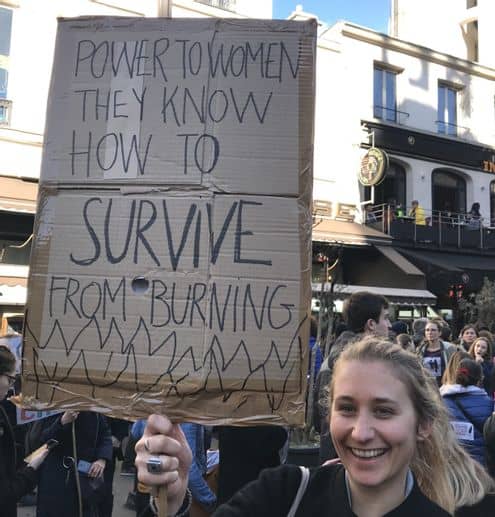 POWER TO WOMEN
THEY KNOW
HOW TO
SURVIVE
FROM BURNING